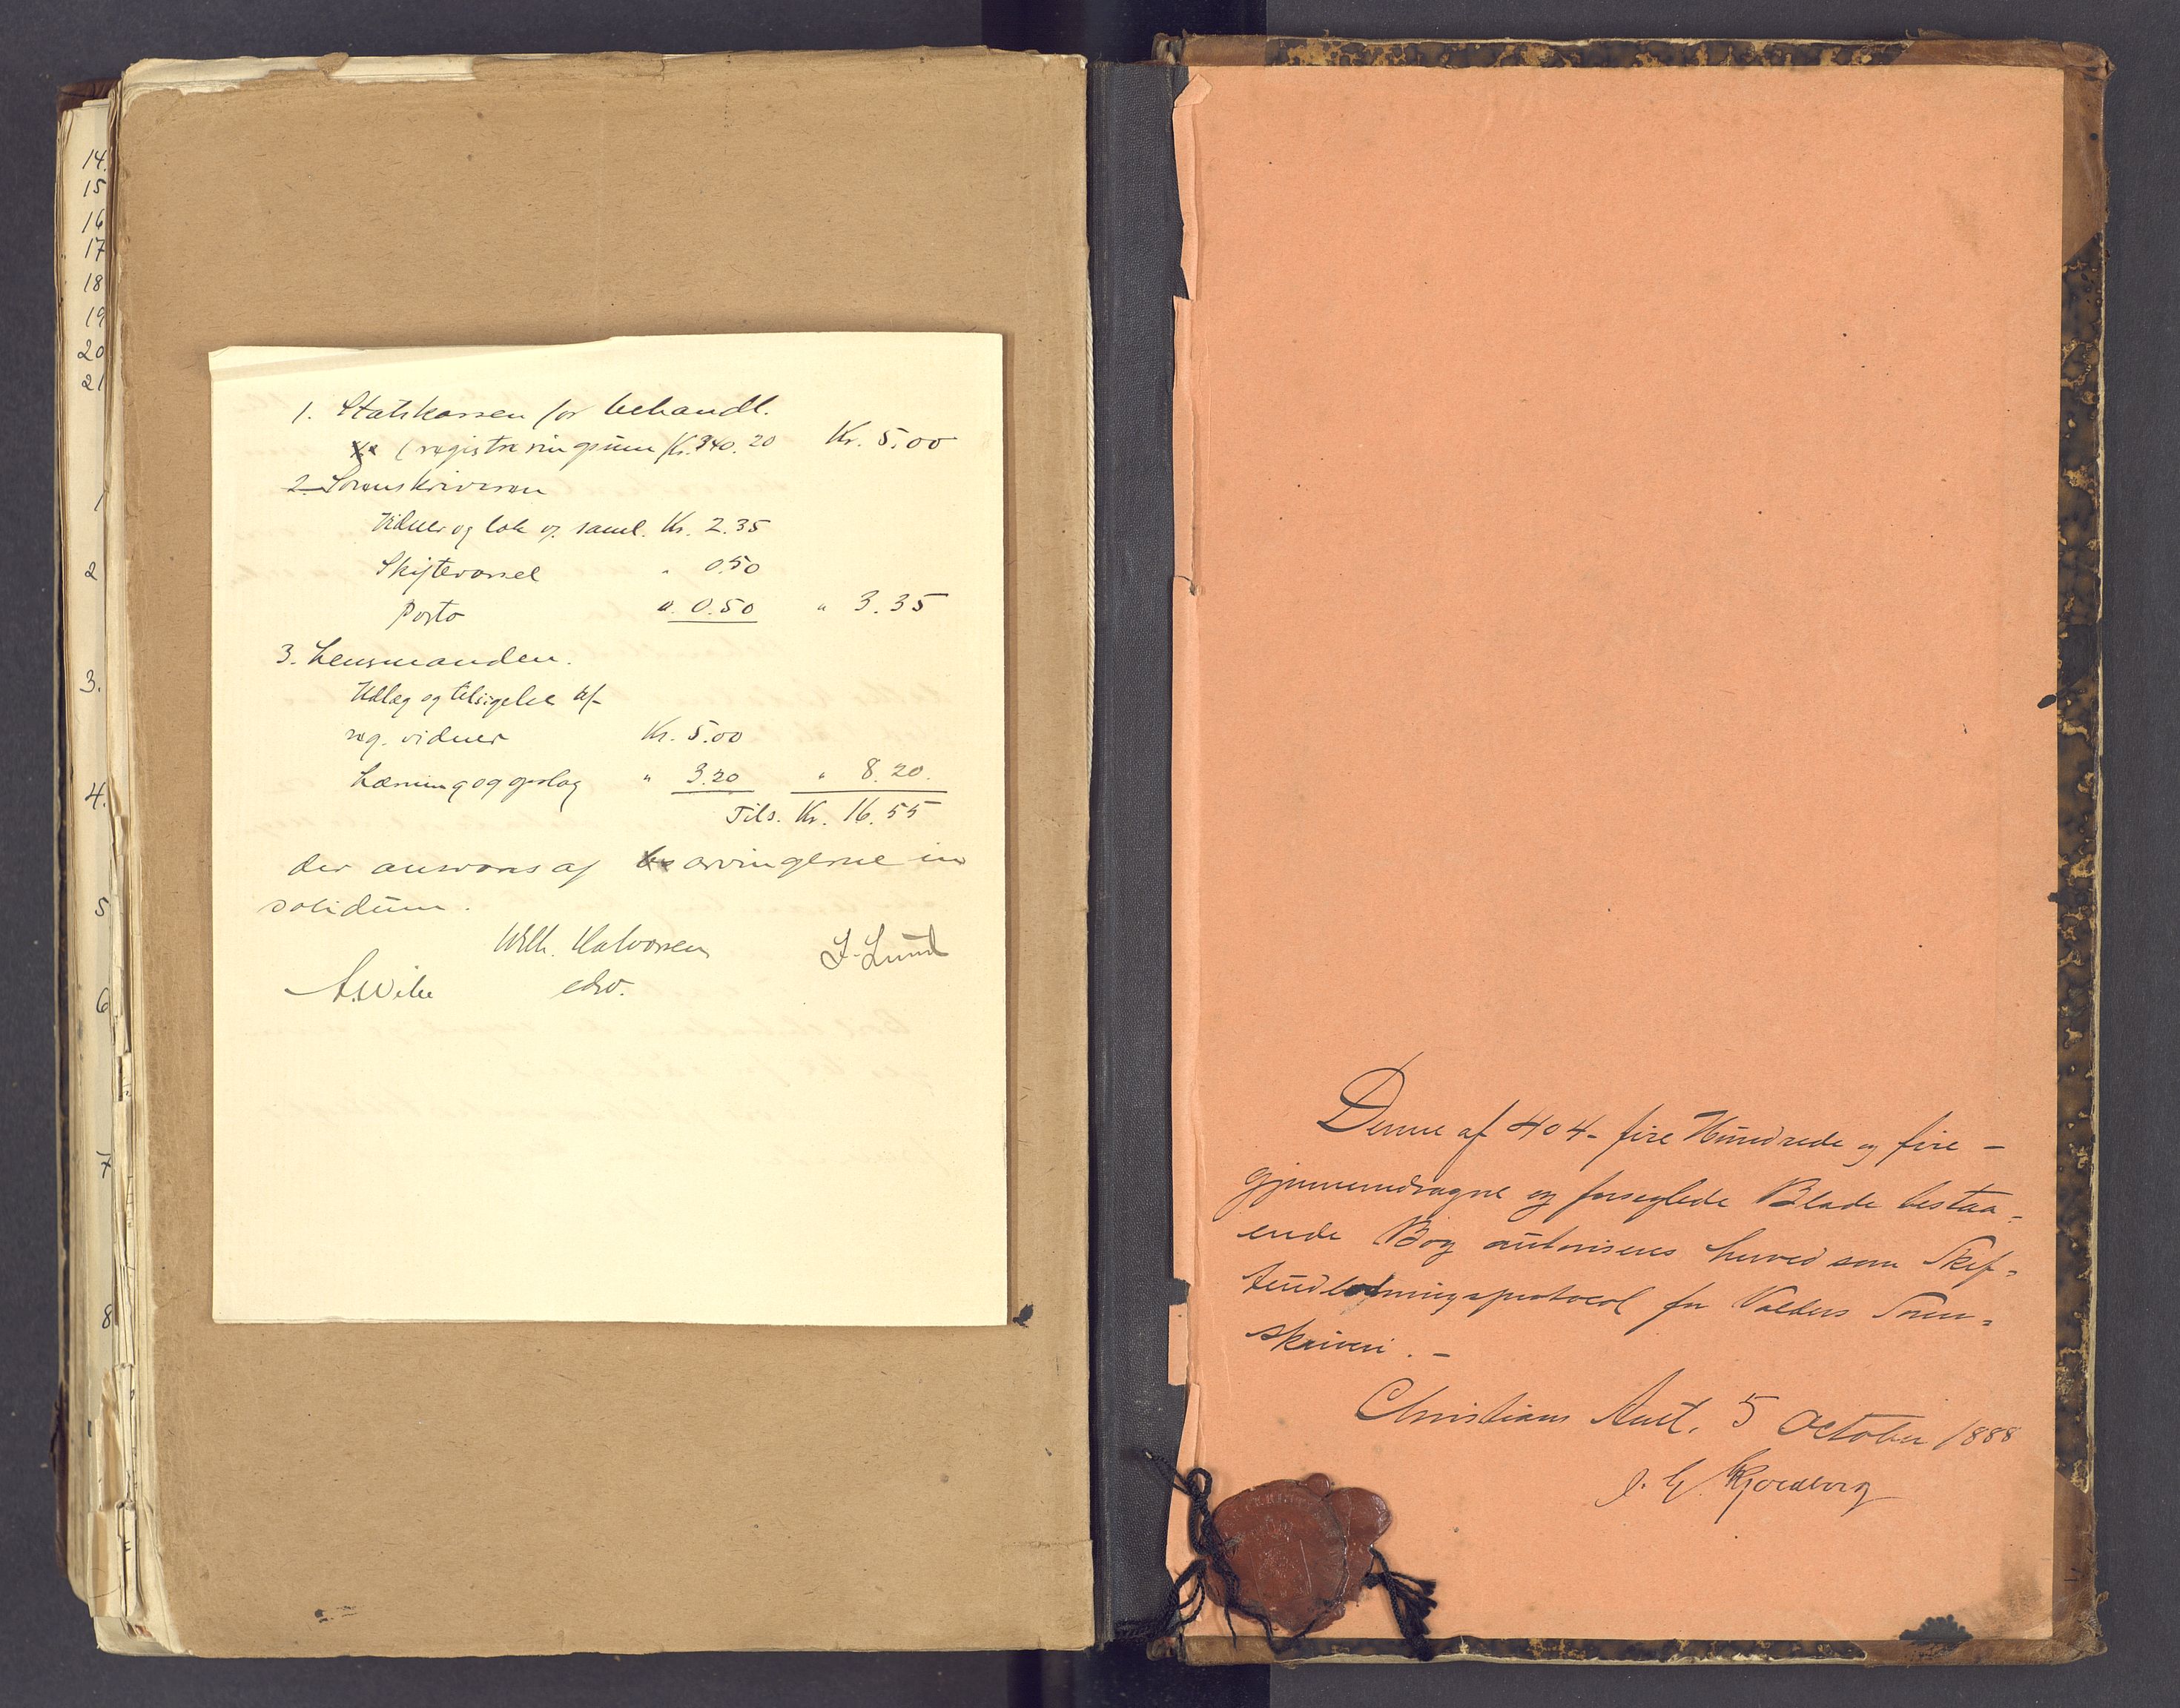 14.
15
16
17
18
19
20
21
1
2
3.
4.
5
6
7
8
1. Statskassen for behandl.
(registreringssum Kr. 340.20 Kr. 5.00
2. Sorenskriveren
Vidner og lok og saml. Kr. 2.35
Skiftevarsel " 0.50
Porto " 0.50 " 3.35
3. Lensmanden.
Udlæg og tilsigelse af
reg. vidner Kr. 5.00
Læsning og opslag " 3.20 " 8.20.
Tils. Kr. 16.55
der ansvares af arvingerne in
solidum.
Wilh. Halvorsen J. Lund
A. Wike edsv.
Denne af 404 - fire Hundrede og fire -
gjennemdragne og forseglede Blade bestaa-
ende Bog autoriseres herved som Skif-
teudlodningsprotocol for Valders Soren-
skriveri. -
Christians Amt, 5 October 1888